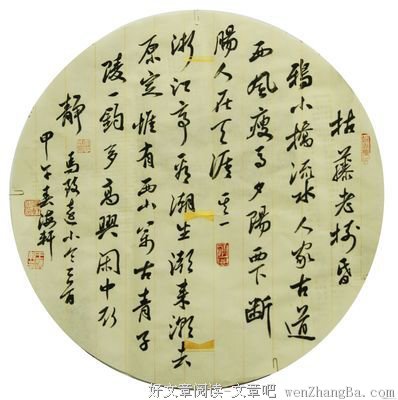 枯藤老树昏
鸦小桥流水人家古道
西风瘦马夕阳西下断
肠人在天涯 其一
浙江亭看潮生潮来潮去
原定惟有西山万古青子
陵一钓多高兴闹中取
静 马致远小令二首
甲午春海轩
好文章阅读-文章吧 wenZhangBa.com